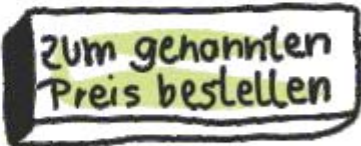 zum genannten
Preis bestellen